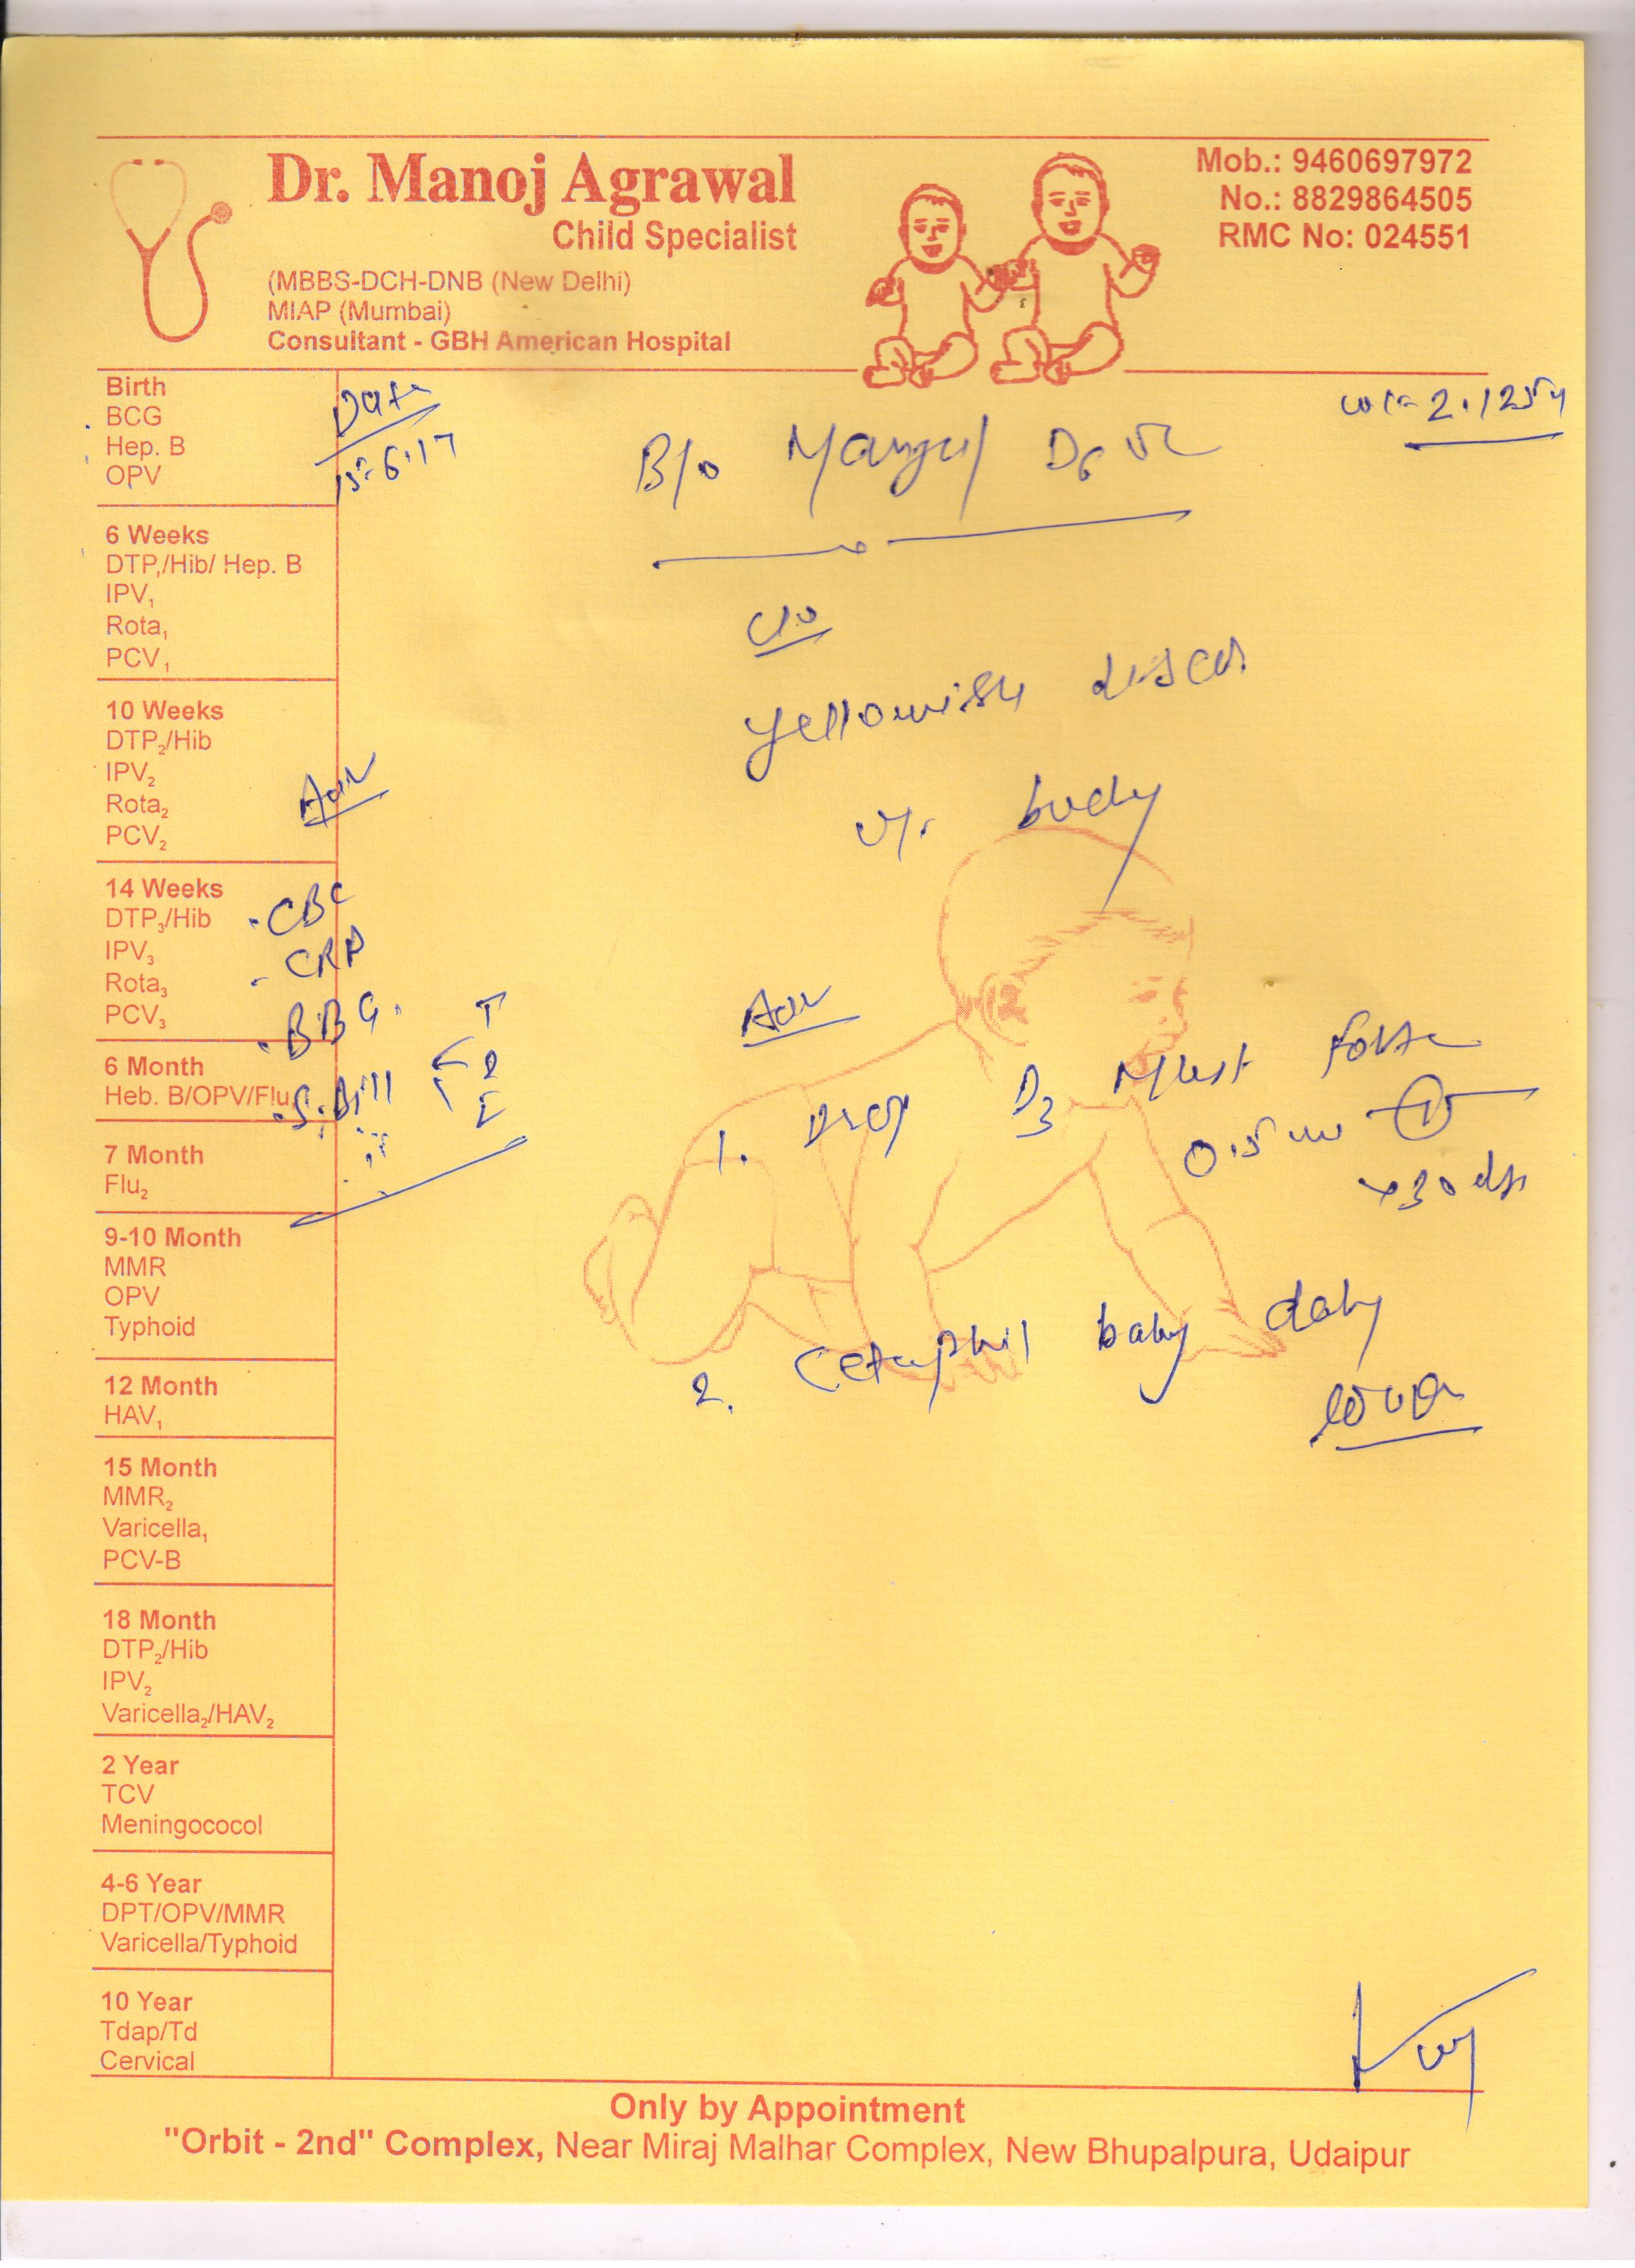 Dr. Manoj Agrawal
Child Specialist
(MBBS-DCH-DNB (New Delhi)
MIAP (Mumbai)
Consultant - GBH American Hospital
Mob.: 9460697972
No.: 8829864505
RMC No: 024551
Birth
BCG
Hep. B
OPV
6 Weeks
DTP,/Hib/ Hep. B
IPV₁
Rota₁
PCV₁
10 Weeks
DTP₂/Hib
IPV₂
Rota₂
PCV₂
14 Weeks
DTP₃/Hib
IPV₃
Rota₃
PCV₃
6 Month
Heb. B/OPV/Flu
7 Month
Flu₂
9-10 Month
MMR
OPV
Typhoid
12 Month
HAV₁
15 Month
MMR₂
Varicella₁
PCV-B
18 Month
DTP₂/Hib
IPV₂
Varicella₂/HAV₂
2 Year
TCV
Meningococol
4-6 Year
DPT/OPV/MMR
Varicella/Typhoid
10 Year
Tdap/Td
Cervical
Date
6.17
B/o
c/o
yellowish
body
Adv
CBC
CRP
S. Bill
T
D
I
Adv
1. Drop D3 forte
0.5 ml
x 30 days
2. Cetaphil baby daily
lotion
Only by Appointment
"Orbit - 2nd" Complex, Near Miraj Malhar Complex, New Bhupalpura, Udaipur